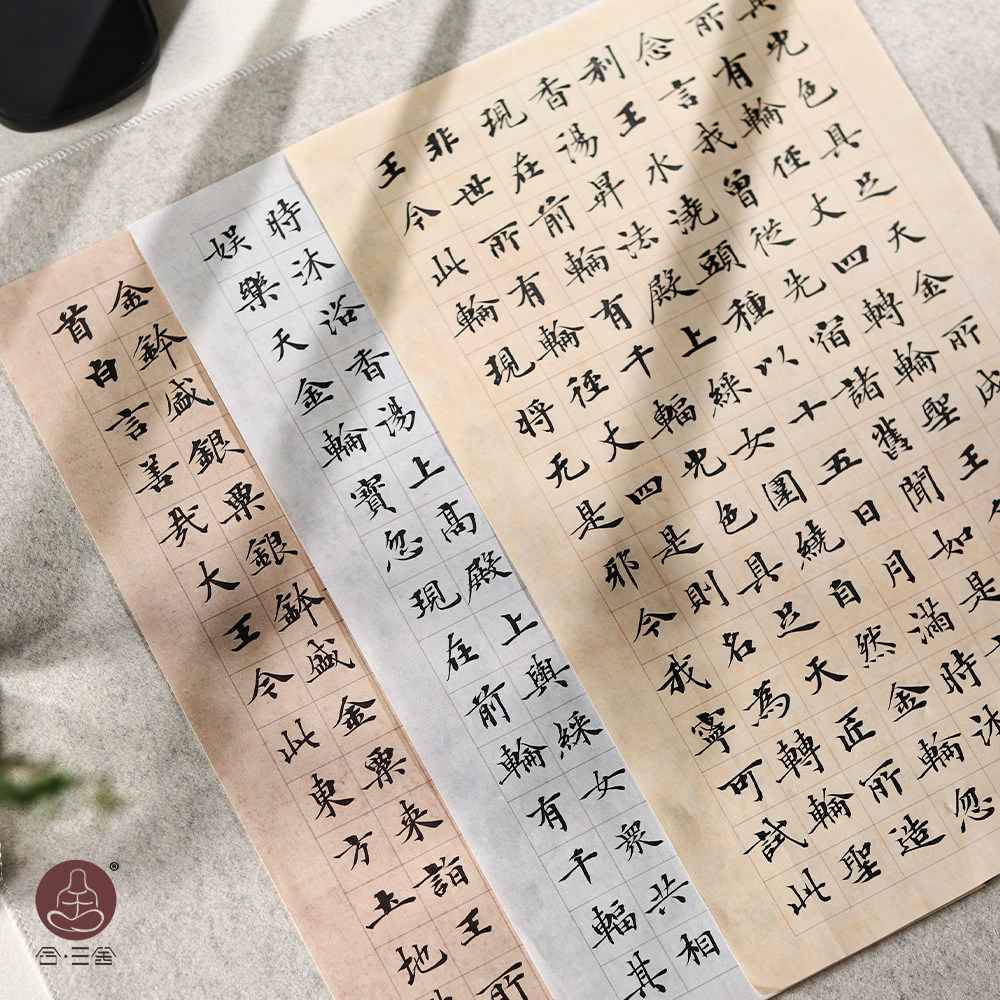 光色具足天金所成
所有輪徑丈四轉輪聖王
念言我曾從先宿諸舊聞如是
利王水澆頭種以十五日月滿時沐
香湯昇法殿上婇女圍繞自然金輪忽
現在前輪有千輻光色具足天匠所造
非世所有輪徑丈四是則名為轉輪聖
王今此輪現將无是邪今我寧可試此
時沐浴香湯上高殿上與婇女眾共相
娛樂天金輪寶忽現在前輪有千輻其
金鉢盛銀粟銀鉢盛金粟来詣王所
首白言善哉大王今此東方土地
三舍